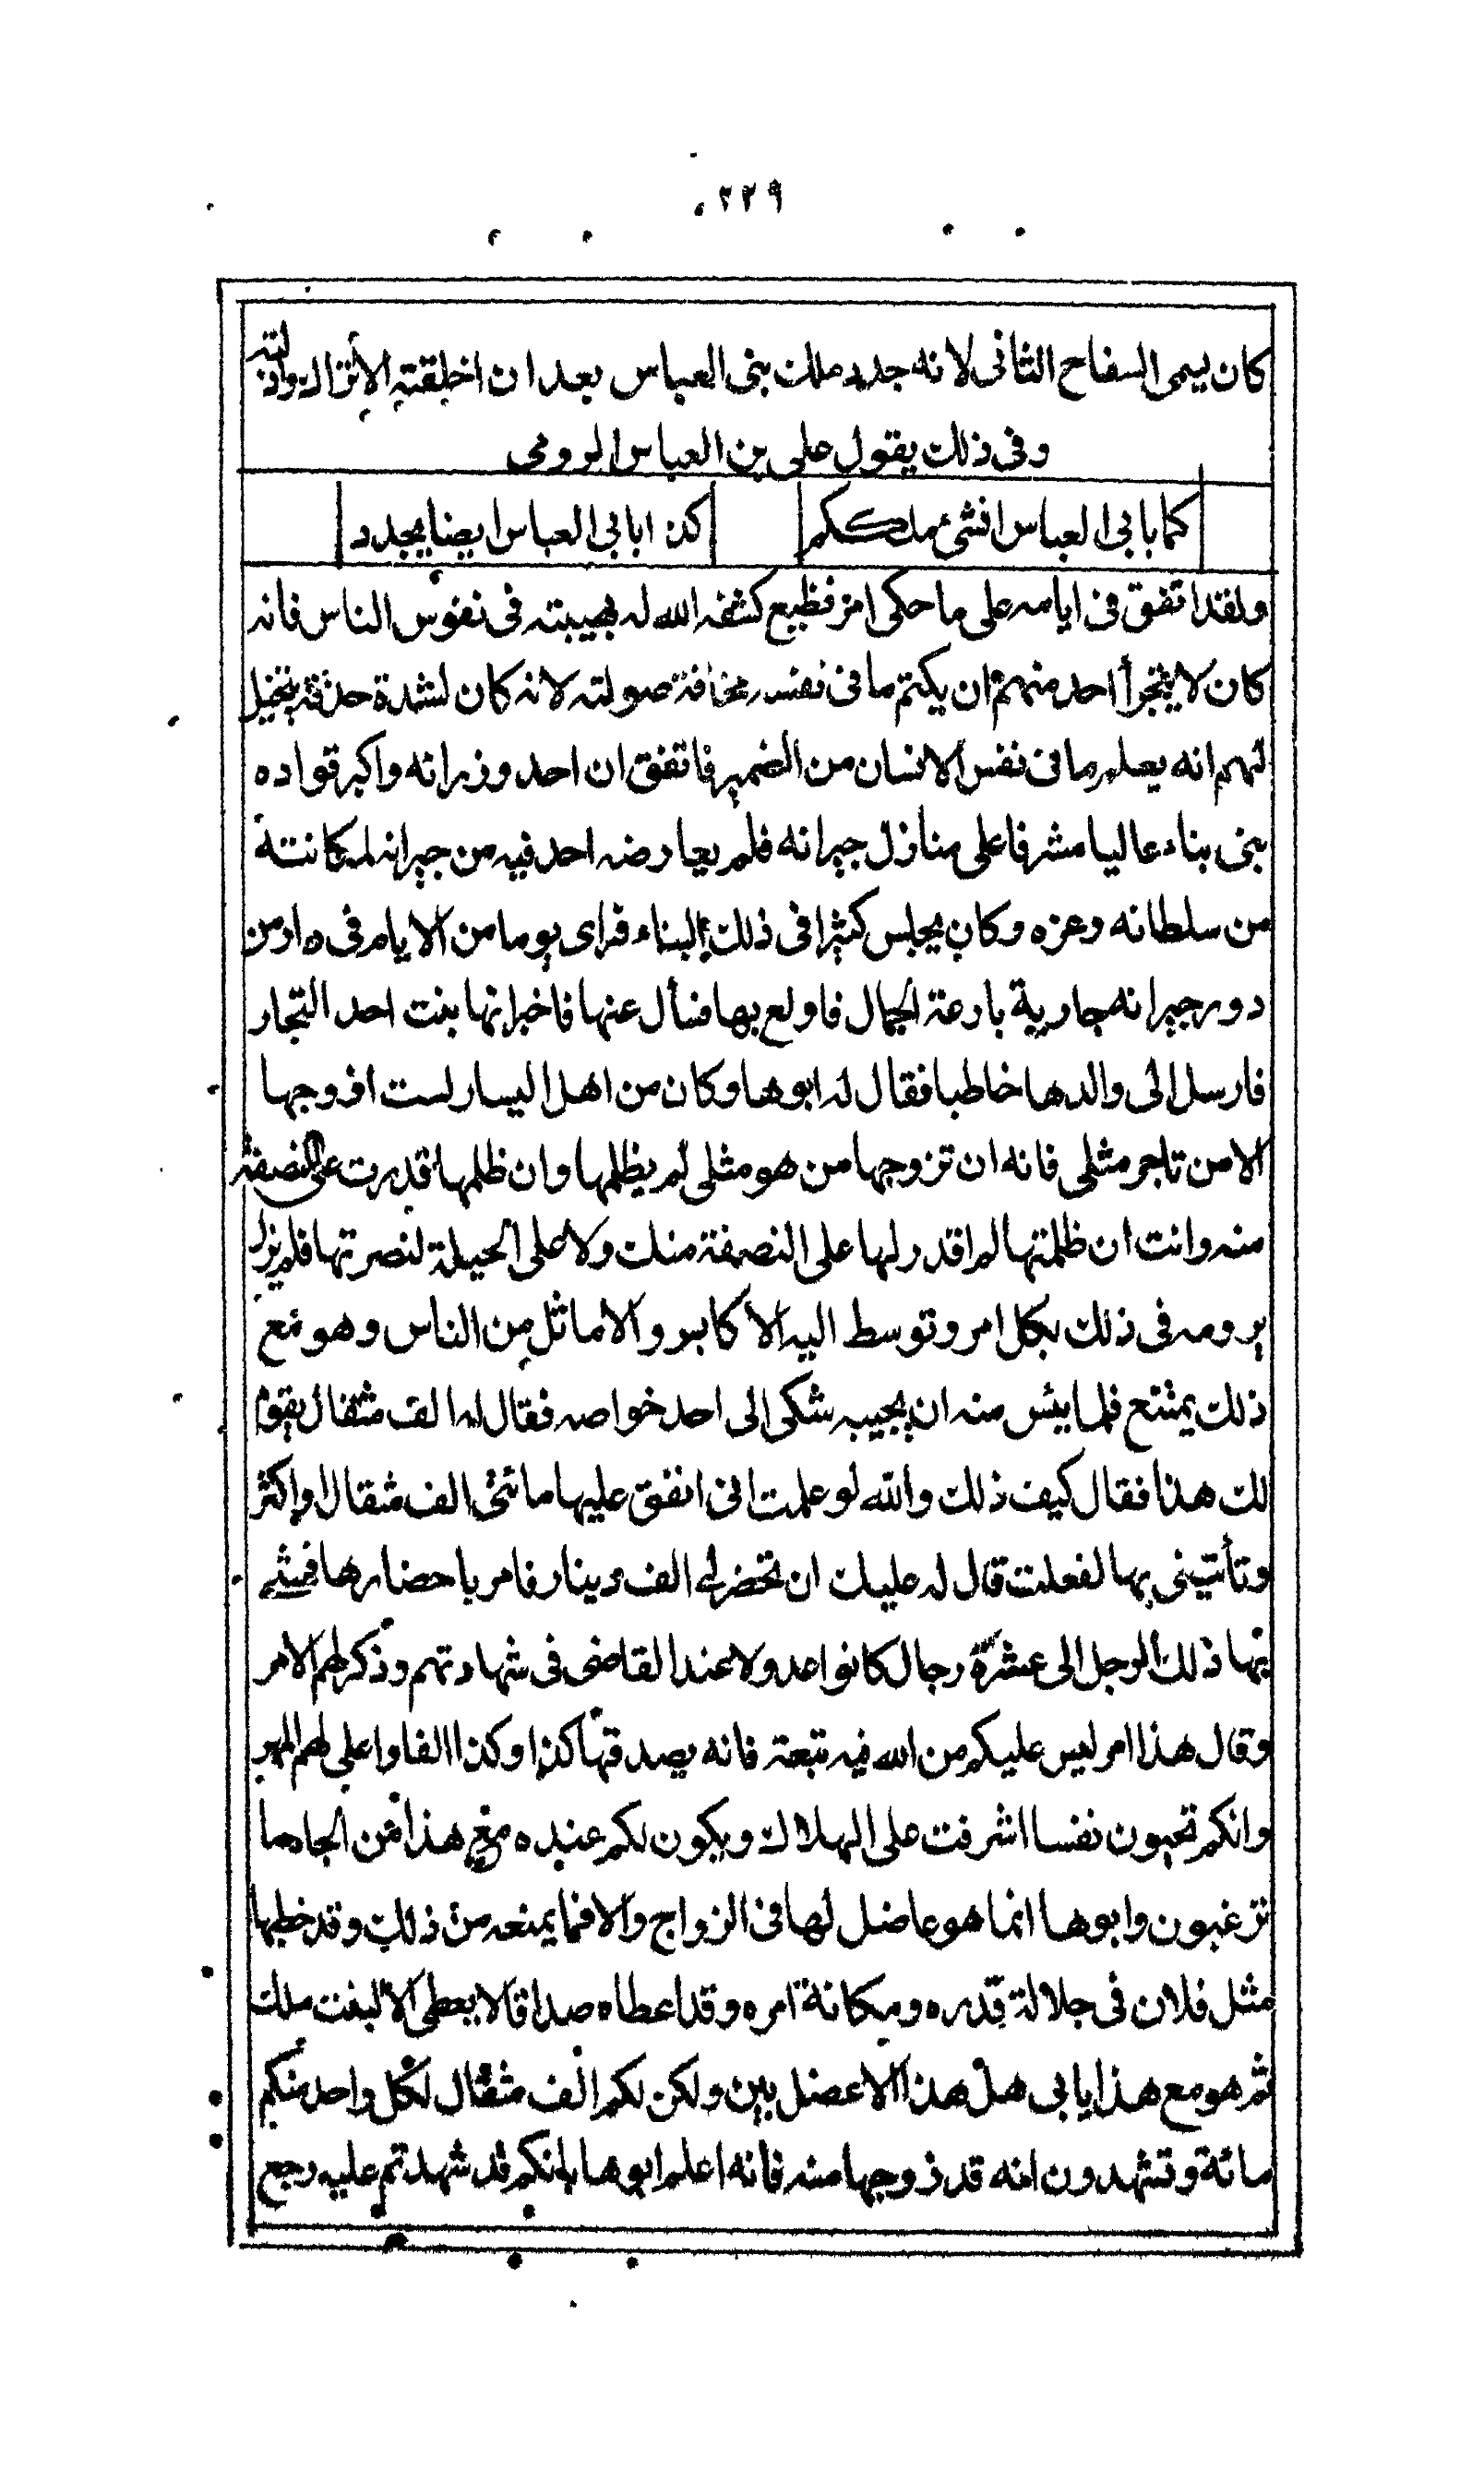 ٢٢٩
كان يسمى السفاح الثانى لانه جديد ملك بنى العباس بعد ان اخلقته الأتراك واذلته
وفى ذلك يقول على بن العباس الرومى
كما بابى العباس انشئ ملككم كذا بابى العباس ايضا يجدد
ولقد اتفق فى ايامه على ما حكى امر فظيع كشفه الله له بهيبته فى نفوس الناس فانه
كان لا يتجرأ احد منهم ان يكتم ما فى نفسه مخافة صولته لانه كان لشدة حذقه يتخيل
لهم انه يعلم ما فى نفس الانسان من الضمير فاتفق ان احد وزرائه واكبر قواده
بنى بناء عاليا مشرفا على منازل جيرانه فلم يعارضه احد فيه من جيرانه لمكانته
من سلطانه وعزه وكان يجلس كثيرا فى ذلك البناء فراى يوما من الايام فى دار من
دور جيرانه جارية بارعة الجمال فاولع بها فسأل عنها فاخبر انها بنت احد التجار
فارسل الى والدها خاطبا فقال له ابوها وكان من اهل اليسار لست ازوجها
الا من تاجر مثلى فانه ان تزوجها من هو مثلى لم يظلمها وان ظلمها قدرت على النصفة
منه وانت ان ظلمتها لم اقدر لها على النصفة منك ولا على الحيلة لنصرتها فلم يزل
يرومه فى ذلك بكل امر وتوسط اليه الأكابر والاماثل من الناس وهو مع
ذلك يمتنع فلما يئس منه ان يجيبه شكى الى احد خواصه فقال له الف مثقال يقوم
لك هذا فقال كيف ذلك والله لو علمت انى انفق عليها مائتى الف مثقال او اكثر
وتأتينى بها لفعلت قال له عليك ان تحضر لى الف دينار فامر باحضارها فمشى
بها ذلك الرجل الى عشرة رجال كانوا عدولا عند القاضى فى شهادتهم وذكر لهم الامر
وقال هذا امر ليس عليكم من الله فيه تبعة فانه يصدقها كذا وكذا الفا واعلى لهم المهر
وانكم تحيون نفسا اشرفت على الهلاك ويكون لكم عنده مع هذا من الجاه ما
ترغبون وابوها انما هو عاضل لها فى الزواج والا فما يمنعه من ذلك وقد خطبها
مثل فلان فى جلالة قدره ومكانة امره وقد اعطاه صداقا لا يعطى الا لبنت ملك
ثم هو مع هذا يابى هل هذا الا عضل بين ولكن لكم الف مثقال لكل واحد منكم
مائة وتشهدون انه قد زوجها منه فانه اعلم ابوها بانكم قد شهدتم عليه رجع